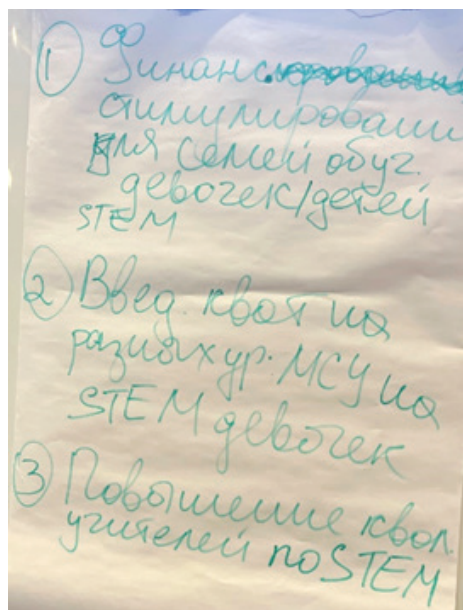 ① Финанс.
стимулировани
для семей обуч.
девочек/детей
STEM
② Введ. квот на
разных ур. МСУ на
STEM девочек
③ Повышение квал.
учителей по STEM